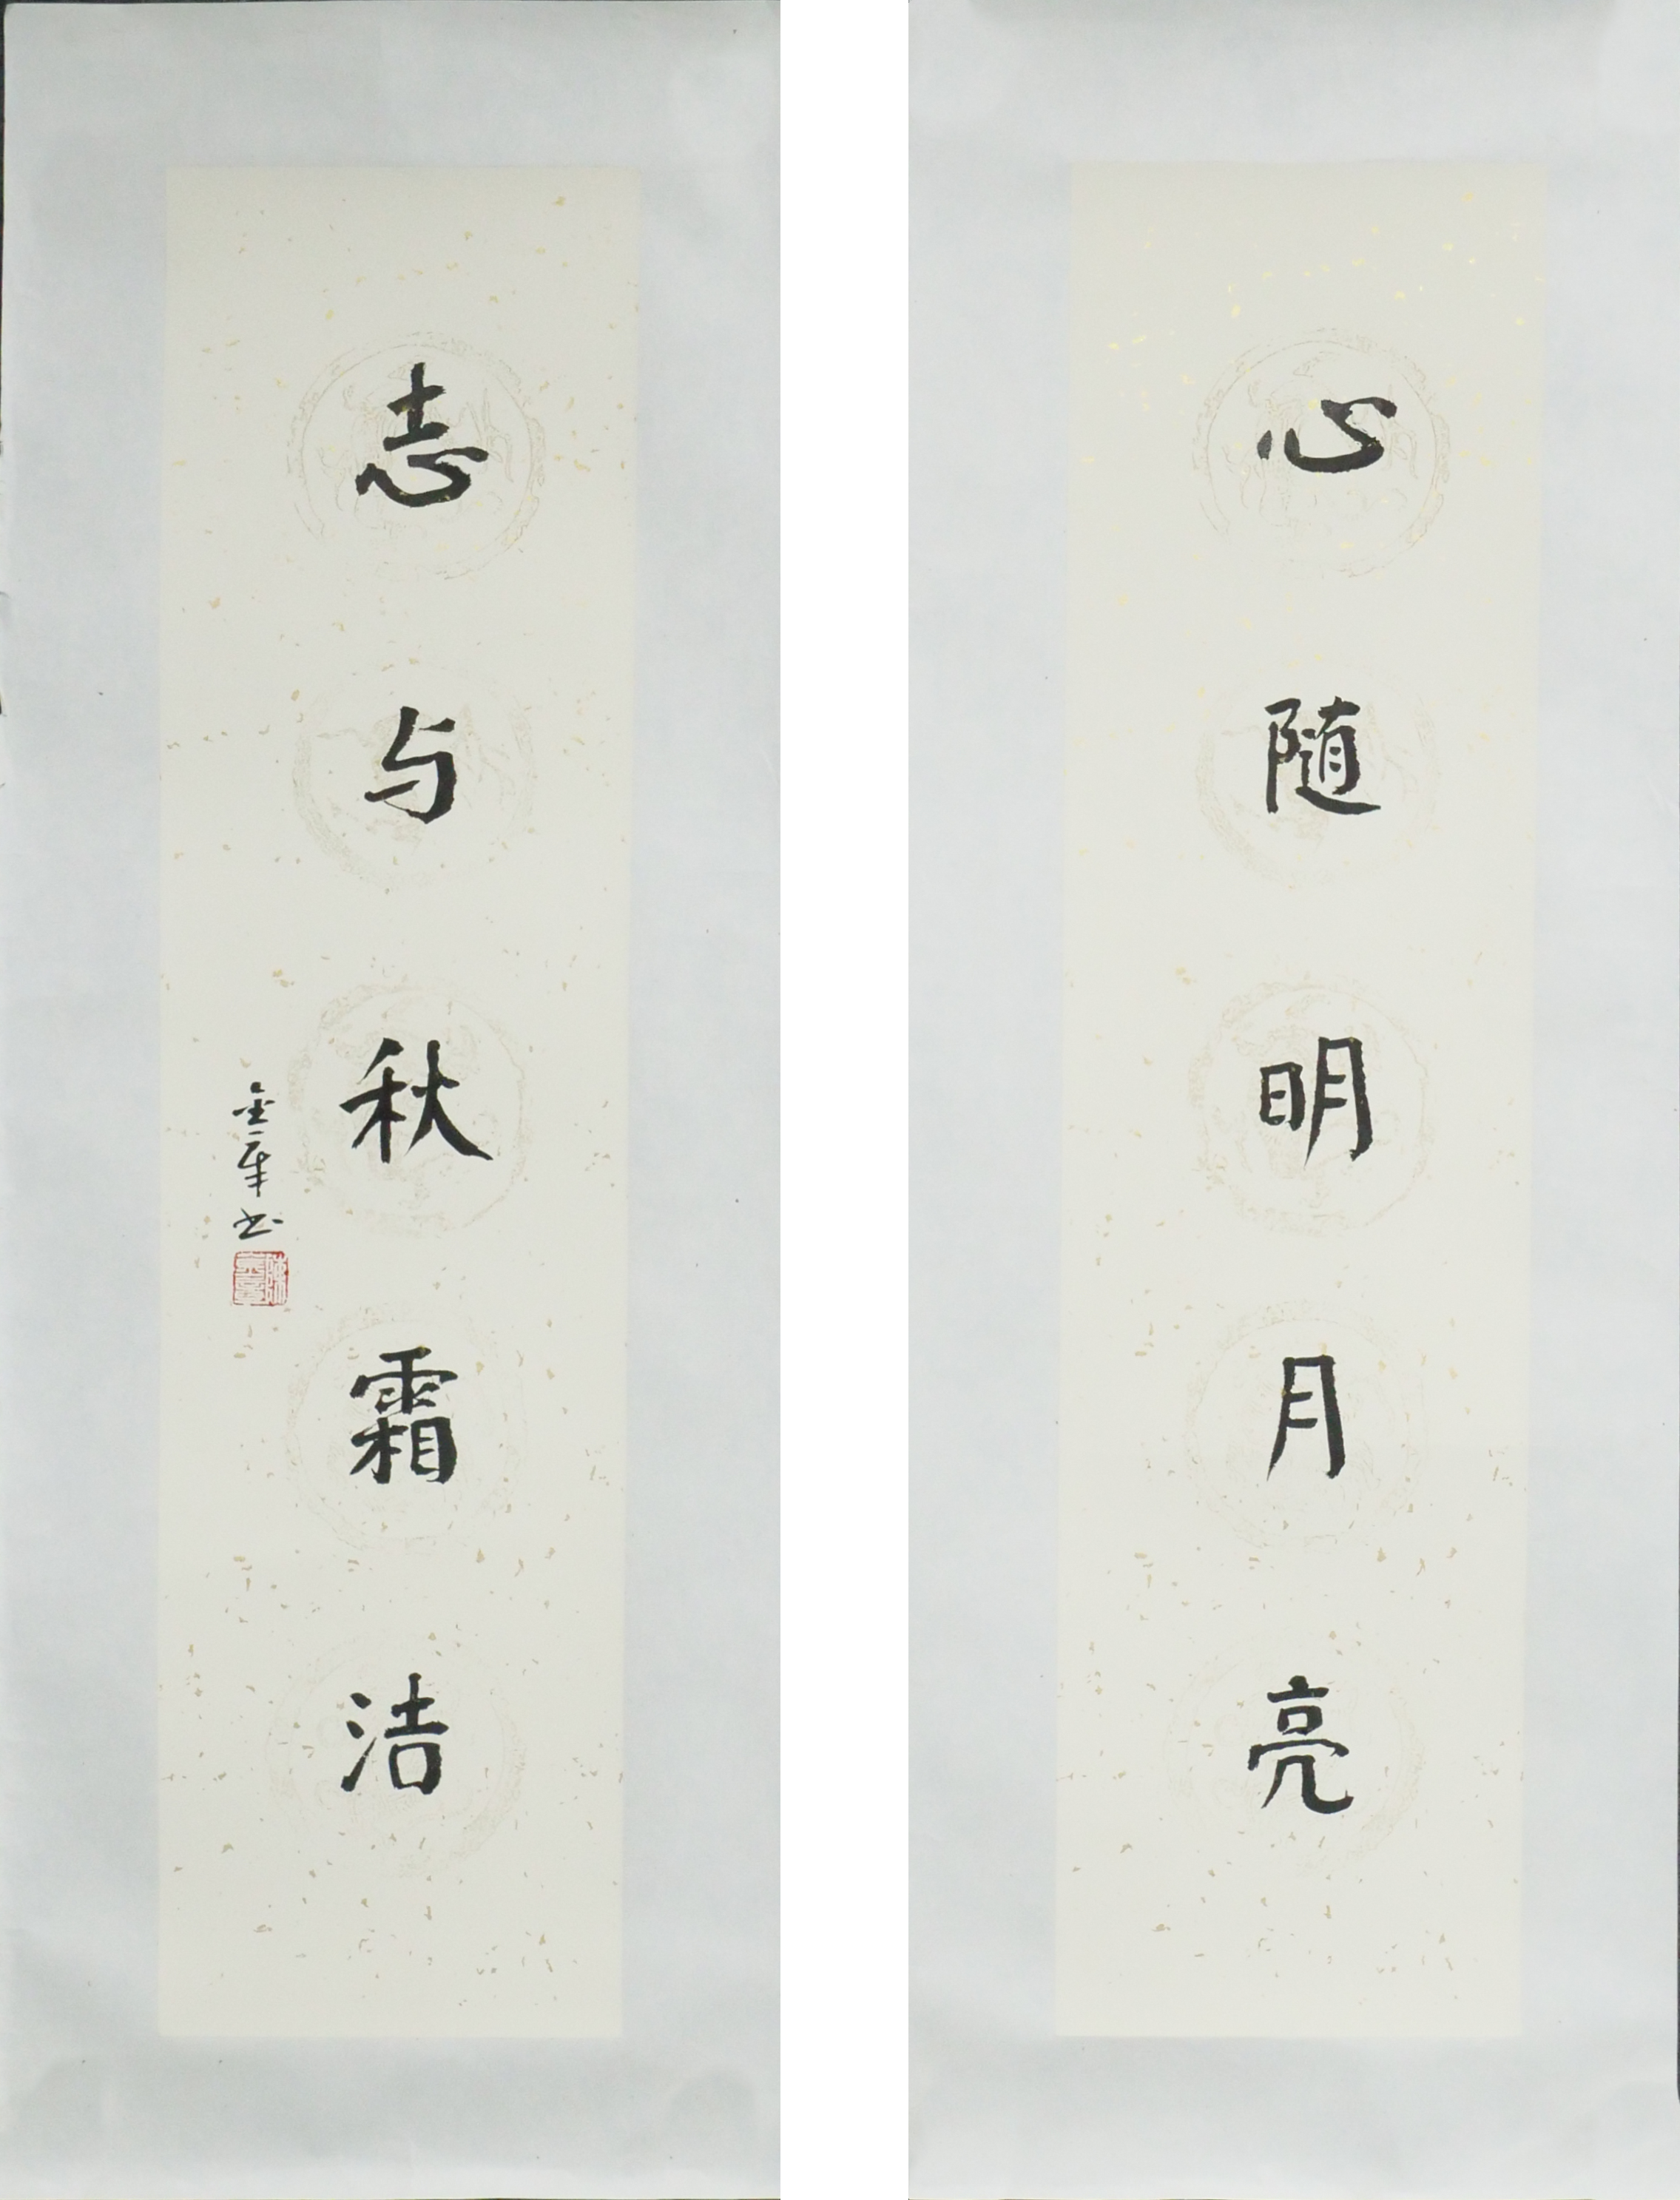 心随明月亮
志与秋霜洁
金章书